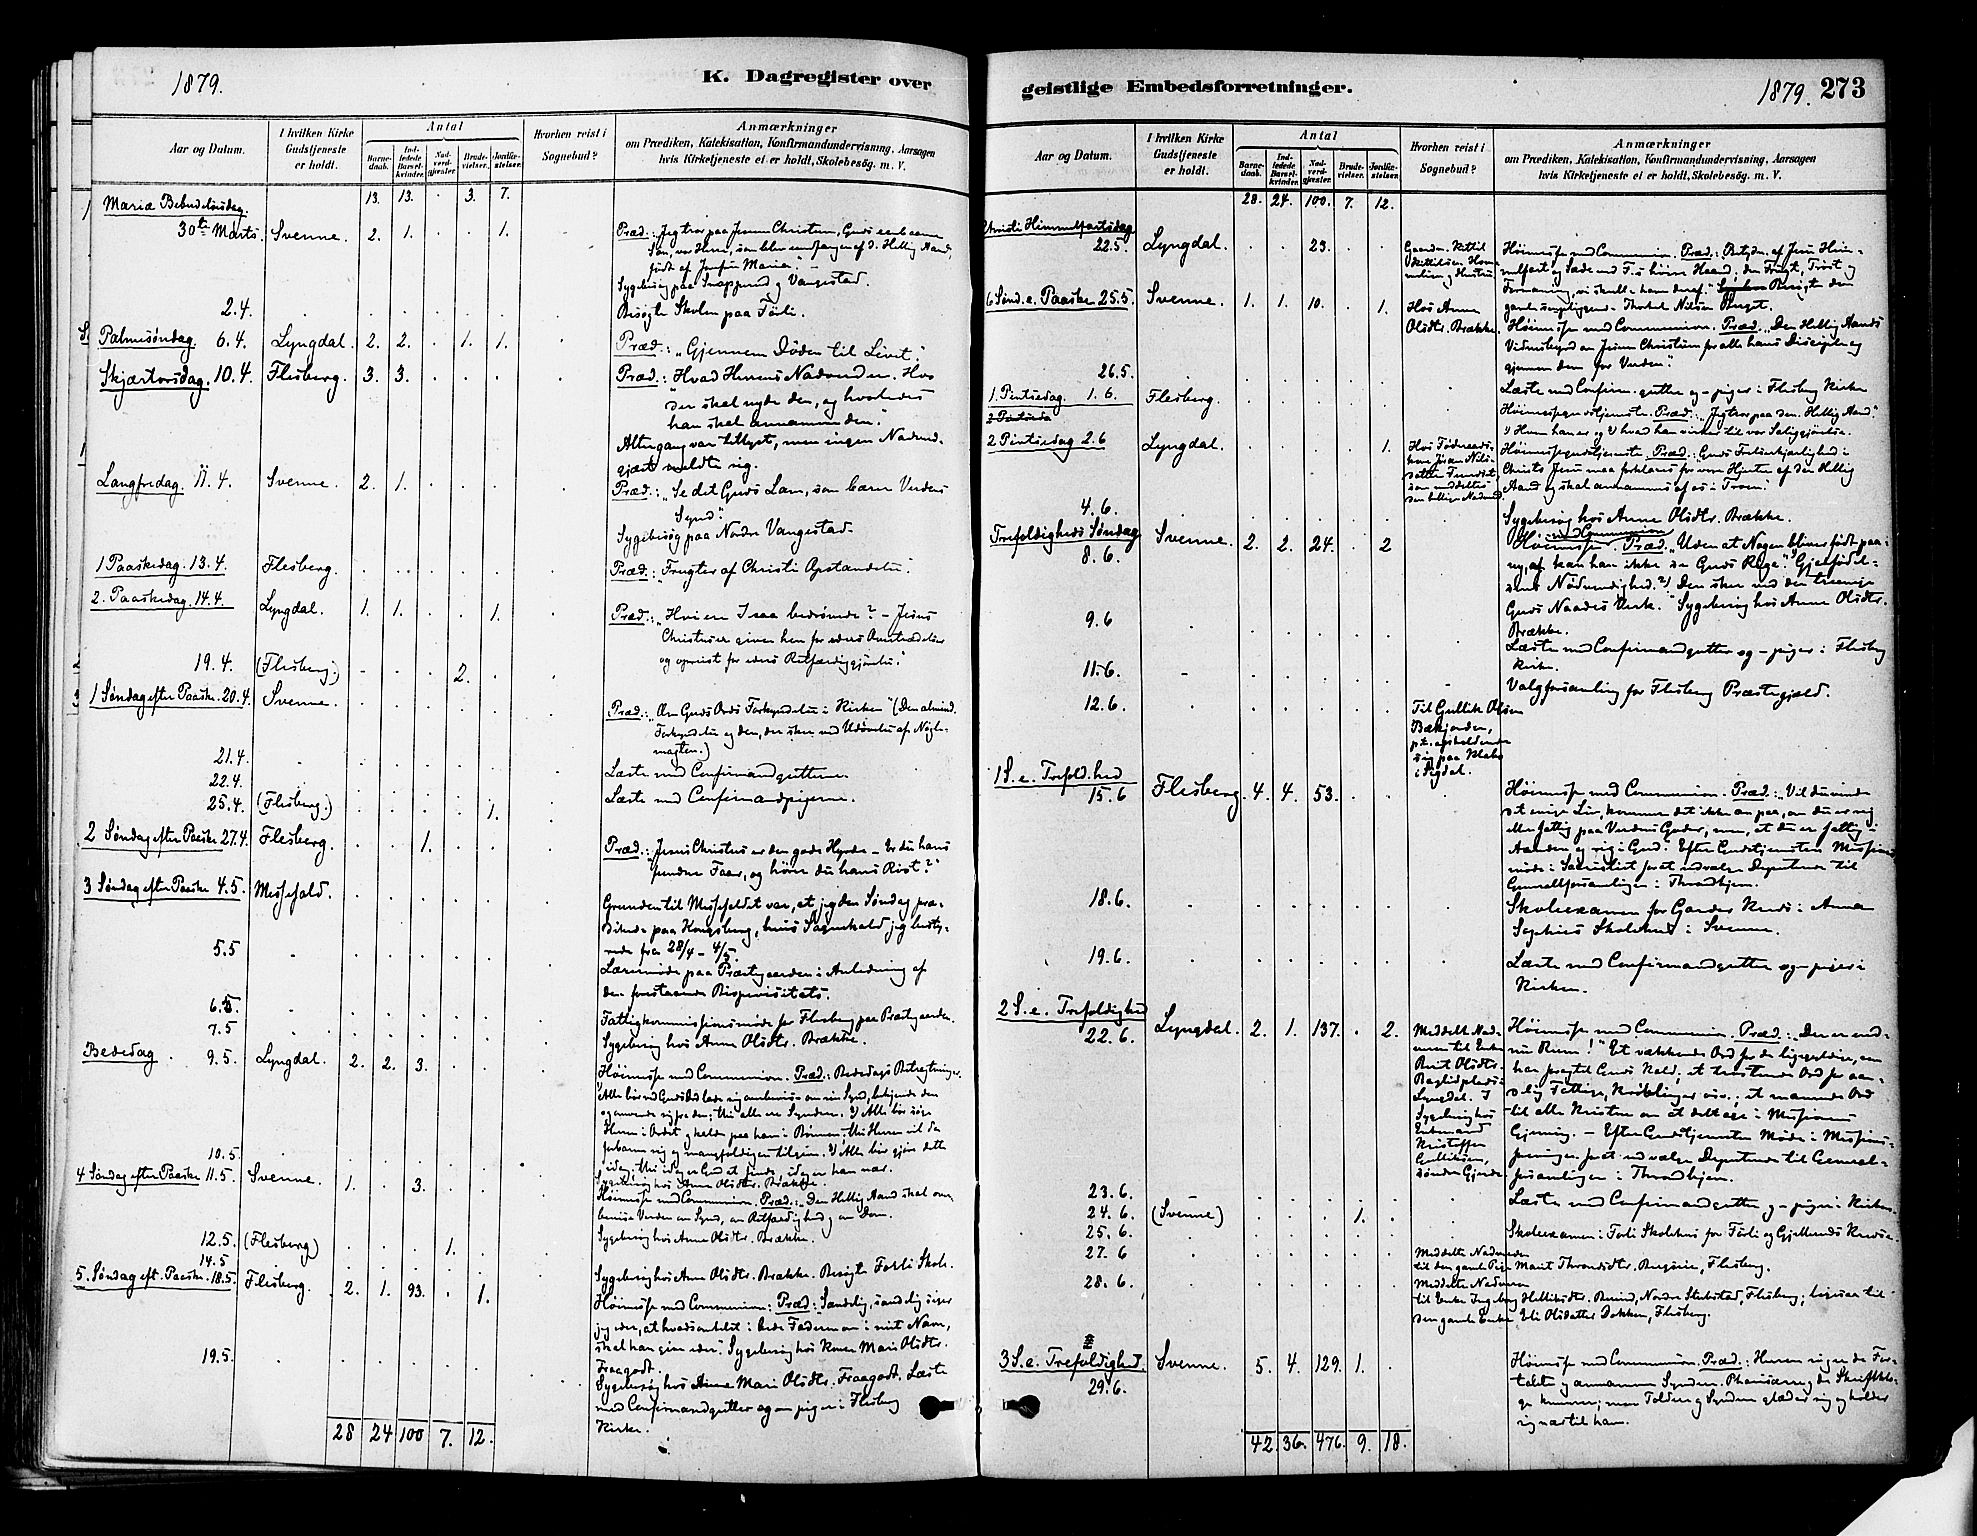 1879.
K. Dagregister over
Aar og Datum.
I hvilken Kirke Gudstjeneste er holdt.
Antal
Barnedaab.
Indledede Barselkvinder.
Nadverdgjæster.
Brudevielser.
Jordfæstelser.
Hvorhen reist i Sognebud?
Anmærkninger
om Prædiken, Katekisation, Konfirmandundervisning, Aarsagen
hvis Kirketjeneste ei er holdt, Skolebesøg. m. V.
13. 13. . 3. 7.
Mariæ Bebudelsesdag
30te Marts. Svenne. 2. 1. . . 1. Præd.: "Jeg tror paa Jesum Christum, Guds eenbaarne
Søn, vor Herre, som blev undfangen af d. Hellig Aand,
født af Jomfru Maria."
Sygebesøg paa Vangestad.
2.4. Besøgte Skolen paa Førli.
Palmesøndag. 6.4. Lyngdal. 2. 2. . 1. 1. Præd.: "Gjennem Døden til Livet."
Skjærtorsdag. 10.4. Flesberg. 3. 3. Præd.: Hvad Herrens Nadver er. Hvo
der skal nyde den, og hvorledes
han skal annamme den."
Altergang var tillyst, men ingen Nadver-
gjæst meldte sig.
Langfredag. 11.4. Svenne. 2. 1. Præd.: "Se det Guds Lam, som bærer Verdens
Synd".
Sygebesøg paa Nordre Vangestad.
1 Paaskedag. 13.4. Flesberg. Præd.: "Frugter af Christi Opstandelse.
2. Paaskedag. 14.4. Lyngdal. 1. 1. . . 1. Præd.: "Hvi ere I saa bedrøvede? - Jesus
Christus er given hen for eders Overtrædelser
og opreist for eders Retfærdiggjørelse."
19.4. (Flesberg.) 2.
1 Søndag efter Paaske. 20.4. Svenne. Præd.: "Om Guds Ords Forkyndelse i Kirken" (Den almind.
Forkyndelse og den, der sker ved Udøvelse af Nøgle-
magten.)
21.4. Læste med Confirmandgutterne.
22.4. Læste med Confirmandpigerne.
25.4. (Flesberg.) 1.
2 Søndag efter Paaske 27.4. Flesberg. 1. Præd.: "Jesus Christus er den gode Hyrde - Er du hans
Faar, og hører du hans Røst?"
3 Søndag efter Paaske 4.5. Messefald. Grunden til Messefaldet var, at jeg den Søndag præ-
dikede paa Kongsberg, hvis Sognekald jeg besty-
rede fra 28/4 - 4/5.
5.5 Læremøde paa Præstegaarden i Anledning af
den forestaaende Bispevisitats.
6.5. Fattigkommissionsmøde for Flesberg paa Præstegaarden.
7.5 Sygebesøg hos Anne Olsdtr. Brække.
Bededag. 9.5. Lyngdal. 2. 2. 3. Høimesse med Communion. Præd.: Bededags Betragtninger.
10.5. Sygebesøg hos Anne Olsdtr. Brække.
4 Søndag efter Paaske 11.5. Svenne. 1. . 3. Høimesse med Communion. Præd.: "Den Hellig Aand skal over-
bevise Verden om Synd, om Retfærdighed og om Dom.
12.5. (Flesberg) 1. Sygebesøg hos Anne Olsdtr. Brække.
14.5 Sygebesøg hos Anne Olsdtr. Brække. Besøgte Førli Skole.
5. Søndag eft. Paaske. 18.5. Flesberg. 2. 1. 93. . 1. Høimesse med Communion: Præd: Sandelig, sandelig siger
jeg eder, at hvadsomhelst I bede Faderen om i mit Navn,
skal han give eder." Sygebesøg hos Konen Mari Olsdtr.
Fraagodt.
19.5. Sygebesøg hos Mari Olsdtr. Fraagodt. Læste
med Confirmandgutter og piger i Flesberg
Kirke.
28 24 100 7. 12.
geistlige Embedsforretninger.
1879. 273
Aar og Datum.
I hvilken Kirke Gudstjeneste er holdt.
Antal
Barnedaab.
Indledede Barselkvinder.
Nadverdgjæster.
Brudevielser.
Jordfæstelser.
Hvorhen reist i Sognebud?
Anmærkninger
om Prædiken, Katekisation, Konfirmandundervisning, Aarsagen
hvis Kirketjeneste ei er holdt, Skolebesøg. m. V.
28. 24. 100. 7. 12.
Christi Himmelfartsdag
22.5. Lyngdal. 23. Høimesse med Communion. Præd.: Betydn. af Jesu Him-
melfart og Sæde ved F.s høire Haand; den Frugt, Trøst og
Formaning, vi skulle have deraf."
6 Sønd. e. Paaske 25.5. Svenne. 1. 1. 10. . 1. Hos Anne Olsdtr. Brække. Høimesse med Communion. Præd. "Den Hellig Aands
Vidnesbyrd om Jesum Christum for alle hans Disciple og
gjennem dem for Verden".
26.5. Læste med Confirm. gutter og -piger i Flesberg Kirke
1. Pintsedag. 1.6. Flesberg. Høimessegudstjeneste. Præd.: "Jeg tror paa den Hellig Aand."
1) Hvem han er og 2) hvad han virker til vor Saliggjørelse.
2 Pintsedag 2.6 Lyngdal. 1. Høimessegudstjeneste. Præd: Guds Frelserkjærlighed i
Christo Jesu maa forklares for vore Hjerter af den Hellig
Aand og skal annammes af os i Troen."
4.6. Sygebesøg hos Anne Olsdtr. Brække.
Trefoldigheds Søndag 8.6. Svenne. 2. 2. 24. . 2 Høimesse med Communion. Præd. "Uden at Nogen bliver født paa-
ny, kan han ikke se Guds Rige." Gjenfødel-
sens Nødvendighed. 2) Den sker ved den treenige
Guds Naades Verk." Sygebesøg hos Anne Olsdtr.
Brække.
9.6 Læste med Confirmandgutter og -piger i Flesberg
Kirke.
11.6. Valgforsamling for Flesberg Præstegjeld.
12.6. Til Gullik Olsen
i Sigdal.
1 S. e. Trefold.hed 15.6 Flesberg. 4. 4. 53. Høimesse med Communion. Præd.: "Vil du vinde
det evige Liv, kommer det ikke an paa, om du er rig
eller fattig paa Verdens Goder, men, at du er fattig i
Aanden og rig i Gud". Efter Gudstjenesten Missions-
møde i Sacristiet for at udvælge Deputerede til
Generalforsamlingen i Throndhjem.
18.6. Skoleexamen for Gaarder Kreds i Anna
Sophies Skolehus i Svenne.
19.6. Læste med Confirmandgutter og -piger i
Kirken.
2 S. e. Trefoldighed 22.6. Lyngdal. 2. 1. 137. . 2. Høimesse med Communion. Præd.: "Der er end-
nu Rum!" Et vækkende Ord for de ligegyldige,
til alle Kristne om at deltage i Missionens
Gjerning. - Efter Gudstjenesten Møde i Missions-
foreningen for at udvælge Deputerede til General-
forsamlingen i Throndhjem.
23.6. Læste med Confirmandgutter og -piger i Kirken.
24.6. (Svenne) 1.
25.6. Skoleexamen i Førli Skolehus for Førli og Gjellerud Kredse.
27.6 Meddelte Nadveren
til den gamle Pige Marit Throndsdtr. Flesberg.
28.6. Meddelte Nadveren
til Enke Ingeborg Nordre Flesberg; ligesaa til
den gamle Enke Eli Olsdatter Dokken, Flesberg.
3 S. e. Trefoldighed. 29.6. Svenne. 5. 4. 129. 1. Høimesse med Communion. Præd.: Herren søger de For-
tabte og annammer Syndere. Phariseerne og de Skriftklo-
ge knurre; men Toldere og Syndere glæder sig og holder
sig nær til ham.
42. 36. 476. 9. 18.